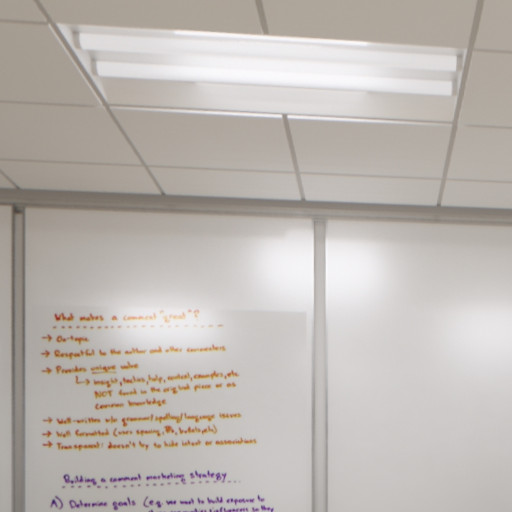 What makes a comment "great"?
→ On-topic
→ Respectful to the author and other commenters
→ Provides unique value
↳ insight, tactics, help, context, examples, etc.
NOT found in the original piece or as
common knowledge
→ Well-written w/o grammar/spelling/language issues
→ Well formatted (uses spacing, bullets, etc)
→ Transparent: doesn't try to hide intent or associations
Building a comment marketing strategy
A) Determine goals (e.g. we want to build exposure to
so they